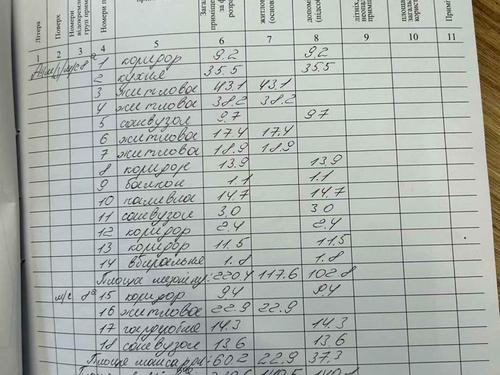 Літера Поверх Номери
1 2 3 4 5 6 7 8 9 10 11
1 коридор 9.2 9.2
2 кухня 35.5 35.5
3 житлова 43.1 43.1
4 житлова 38.2 38.2
5 санвузол 9.7 9.7
6 житлова 17.4 17.4
7 житлова 18.9 18.9
8 коридор 13.9 13.9
9 балкон 1.1 1.1
10 паливна 14.7 14.7
11 санвузол 3.0 3.0
12 коридор 2.4 2.4
13 коридор 11.5 11.5
14 вбиральня 1.8 1.8
Площа 220.4 117.6 102.8
м/с 8ª 15 коридор 9.4 9.4
16 житлова 22.9 22.9
17 гардеробна 14.3 14.3
18 санвузол 13.6 13.6
Площа мансарди: 60.2 22.9 37.3